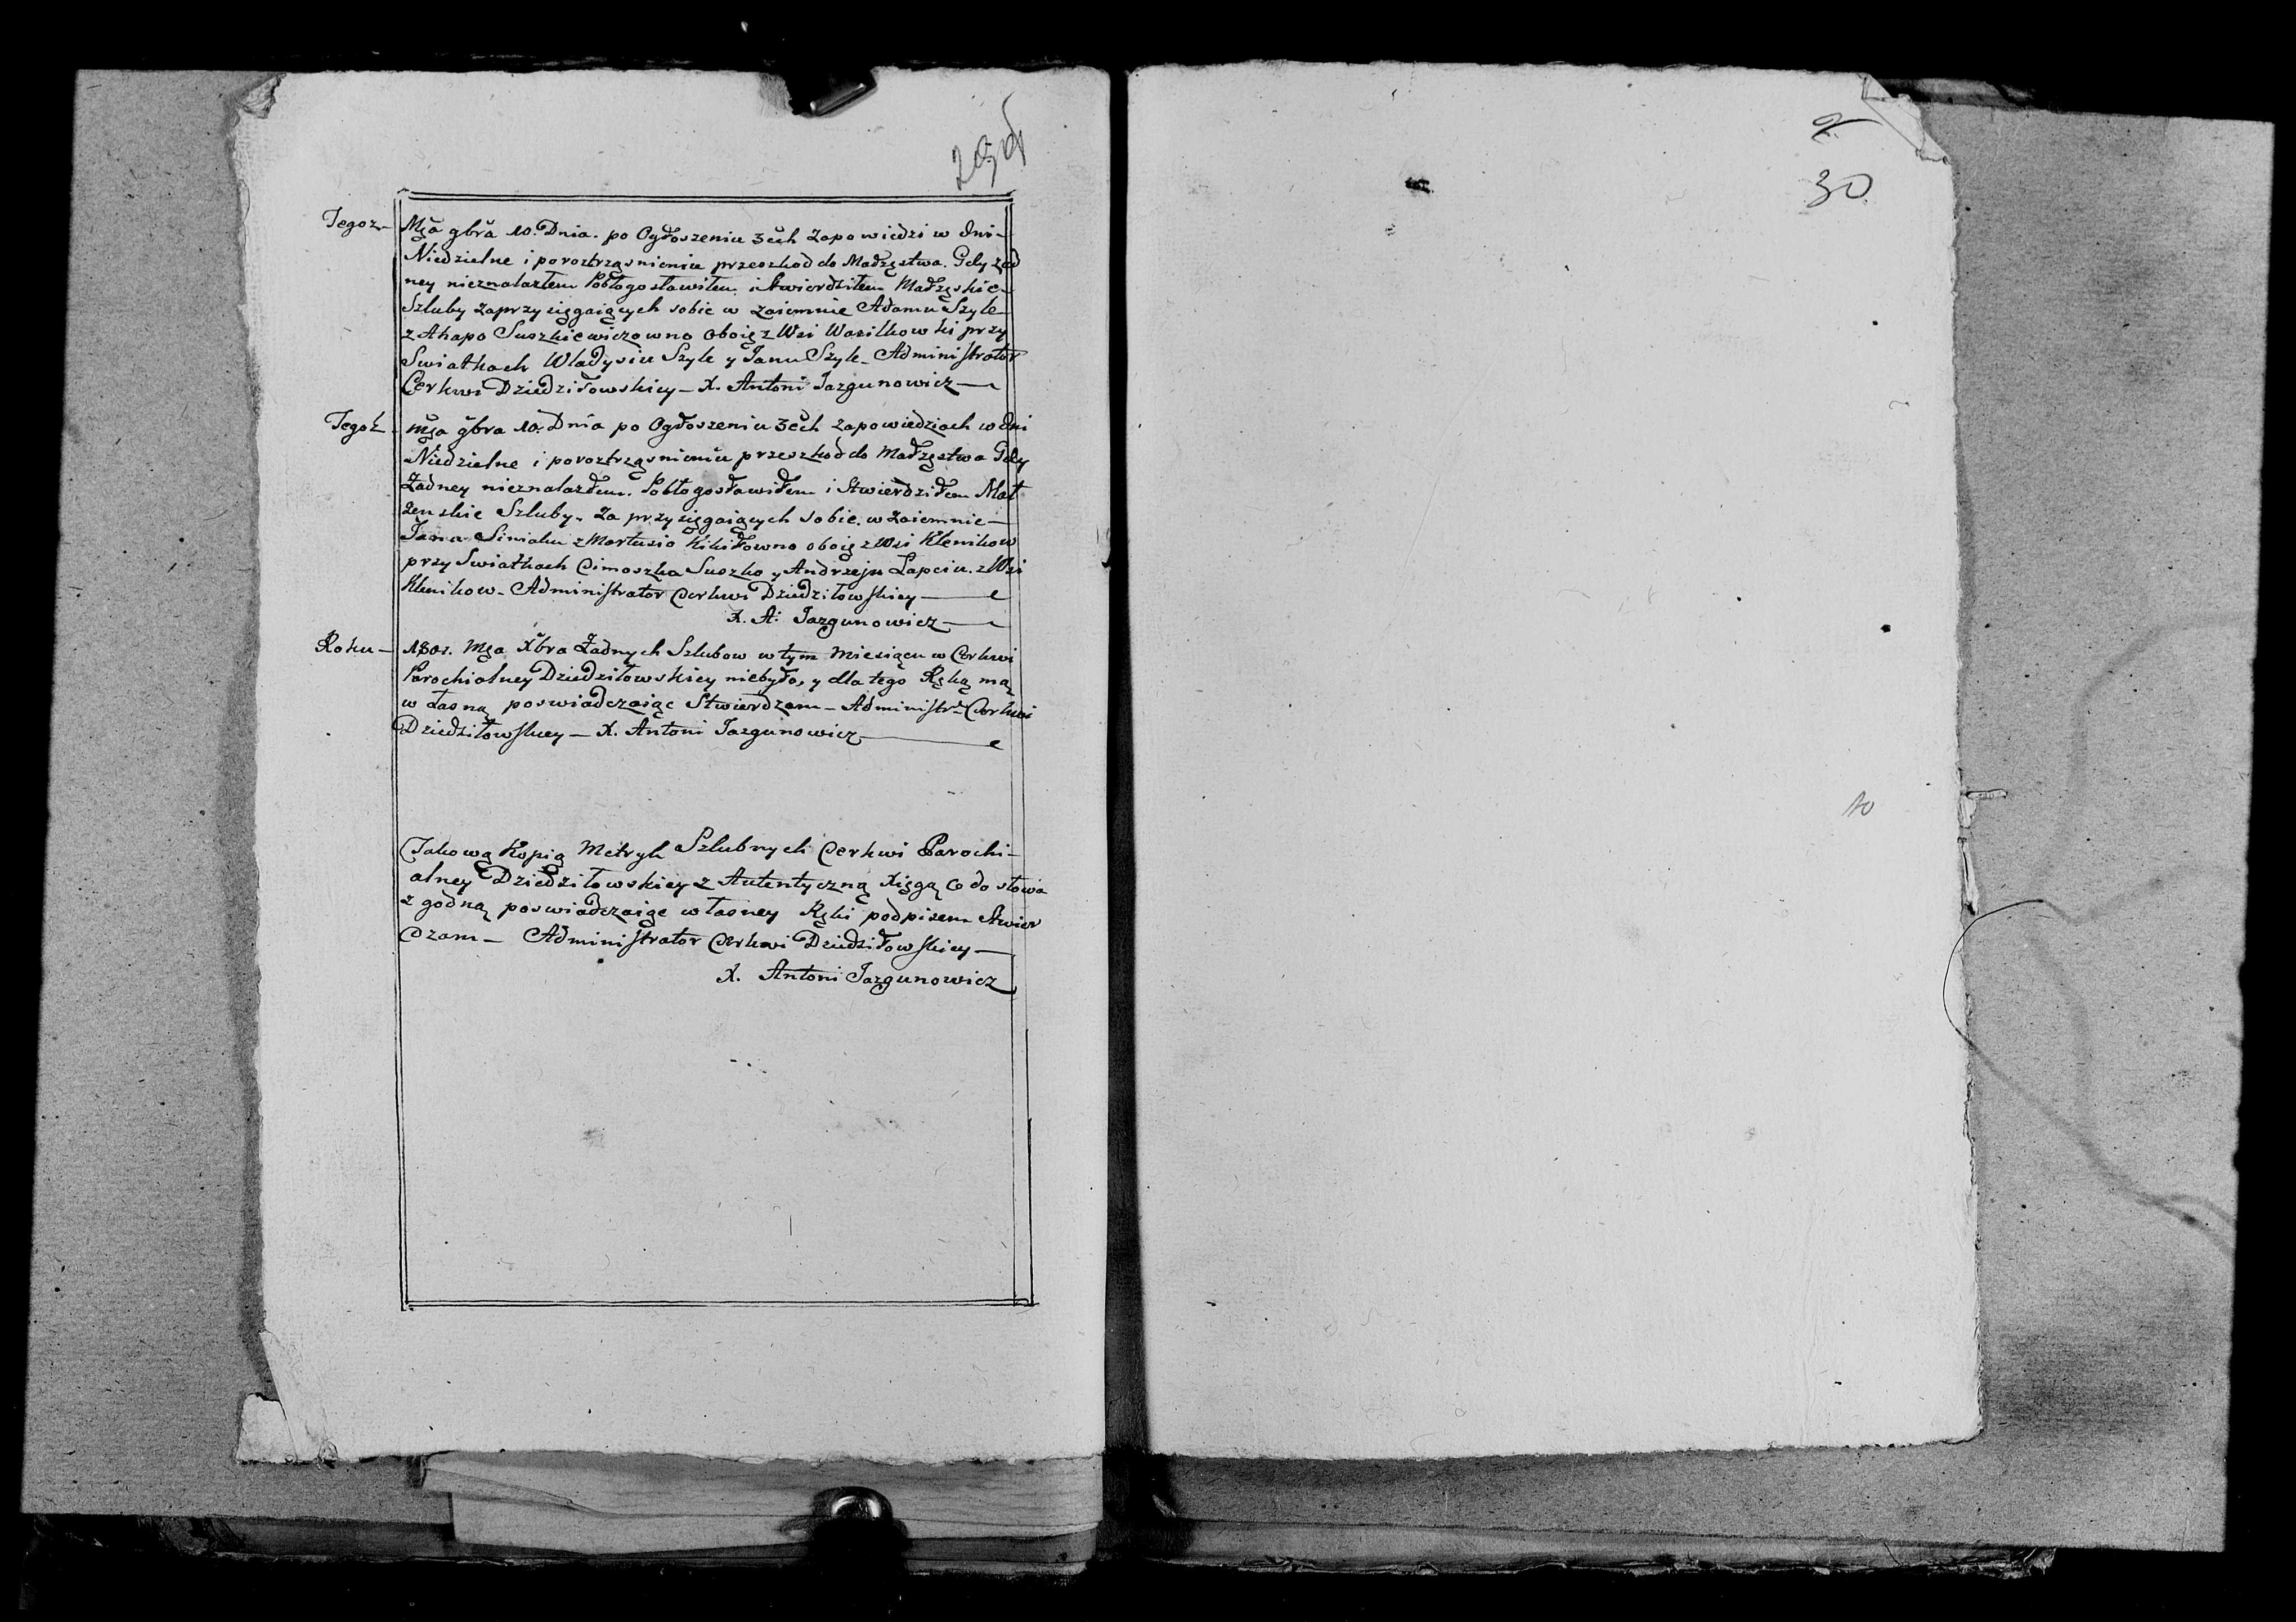 29об
Tegoz – Mca 9bra 10. Dnia. po Ogłoszeniu 3ech Zapowiedzi w dni-
Niedzielne i poroztrząsnieniu przeszkod do Madzęstwa. Gdy żad
ney nieznalazłem Pobłogosławiłem i Stwierdziłem Madzęskie
Szluby zaprzysięgaiących sobie w zaiemnie Adamu Szyle
z Ahapo Suszkiewiczowno oboię z Wsi Wasilkowki przy
Swiatkach Władysiu Szyle y Janu Szyle – Administrator
Cerkwi Dziedziłowskiey – X. Antoni Jazgunowicz
Tegoż – mca 9bra 10. Dnia po Ogłoszeniu 3ech zapowiedziach w dni
Niedzielne i poroztrząsnieniu przeszkod do Madzęstwa Gdy
Żadney nieznalazłem. Pobłogosławiłem i Stwierdziłem Mał
żenskie Szluby. Zaprzysięgaiących sobie. w zaiemnie –
Jana Siniaku z Martusio Kikiłowno oboię z Wsi Klenikow
przy Swiatkach Cimoszka Suszko y Andrzeju Łapciu. z Wsi
Klenikow – Administrator Cerkwi Dziedziłowskiey
X. A: Jazgunowicz
Roku – 1801. Mca Xbra Żadnych Szlubow w tym Miesiącu w Cerkwi
Parochialney Dziedziłowskiey niebyło, y dla tego Ręką mą
własną poswiadczaiąc Stwierdzam – Administr. Cerkwi
Dziedziłowskiey – X. Antoni Jazgunowicz
Takową Kopią Metryk Szlubnych Cerkwi Parochi-
alney Dziedziłowskiey z Autentyczną Xięgą co do słowa
zgodną poswiadczaiąc własney Ręki podpisem Stwier
dzam – Administrator Cerkwi Dziedziłowskiey –
X. Antoni Jazgunowicz
30
10